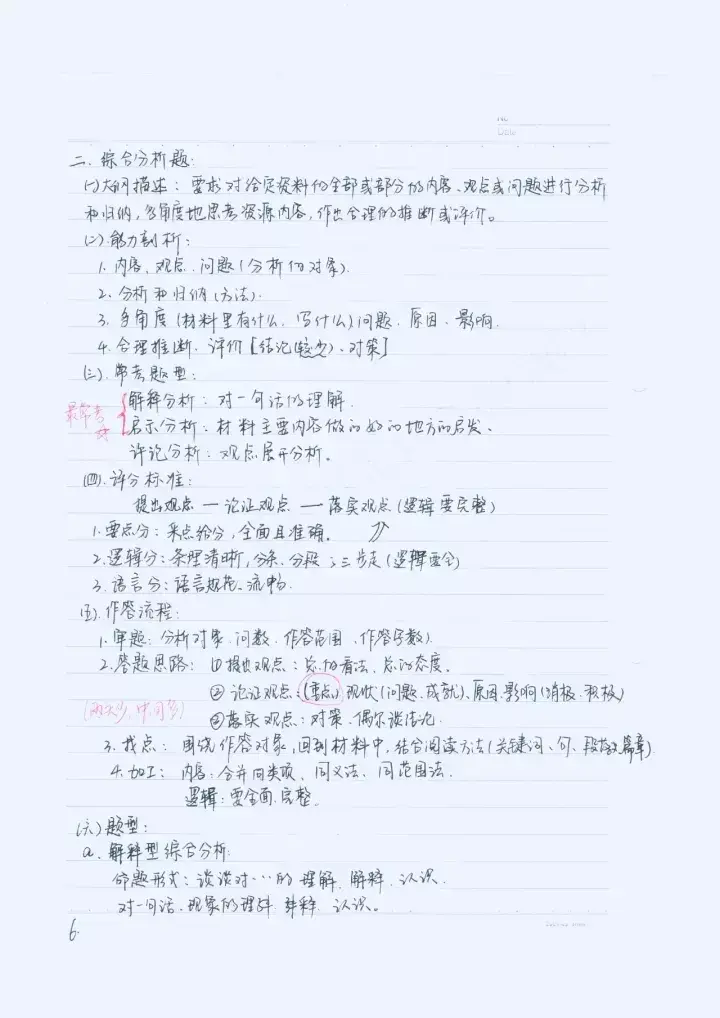 No
Date
二、综合分析题:
(一)大纲描述：要求对给定资料的全部或部分的内容、观点或问题进行分析
和归纳,多角度地思考资源内容,作出合理的推断或评价。
(二).能力剖析：
1. 内容、观点、问题(分析的对象).
2. 分析和归纳(方法).
3. 多角度(材料里有什么,写什么)问题、原因、影响.
4. 合理推断、评价[结论(较少)、对策]
(三).常考题型：
最常考
解释分析：对一句话的理解.
启示分析：材料主要内容做的好的地方的启发、
评论分析：观点展开分析。
(四).评分标准：
提出观点 — 论证观点 — 落实观点(逻辑要完整)
1.要点分：采点给分,全面且准确。
2.逻辑分：条理清晰,分条、分段；三步走(逻辑要全)
3.语言分：语言规范、流畅.
(五).作答流程：
1.审题：分析对象、问数、作答范围、作答字数).
2.答题思路：①提出观点：总的看法、总的态度。
②论证观点：(重点)现状(问题、成就)、原因、影响(消极、积极)
(两头少,中间多)
③落实观点：对策、偶尔谈结论.
3. 找点：围绕作答对象,回到材料中,结合阅读方法(关键词、句、段落、篇章)
4.加工：内容：合并同类项、同义法、同范围法.
逻辑：要全面、完整.
(六)题型：
a. 解释型综合分析:
命题形式：谈谈对…的理解、解释、认识.
对一句话、现象的理解、解释、认识。
6.